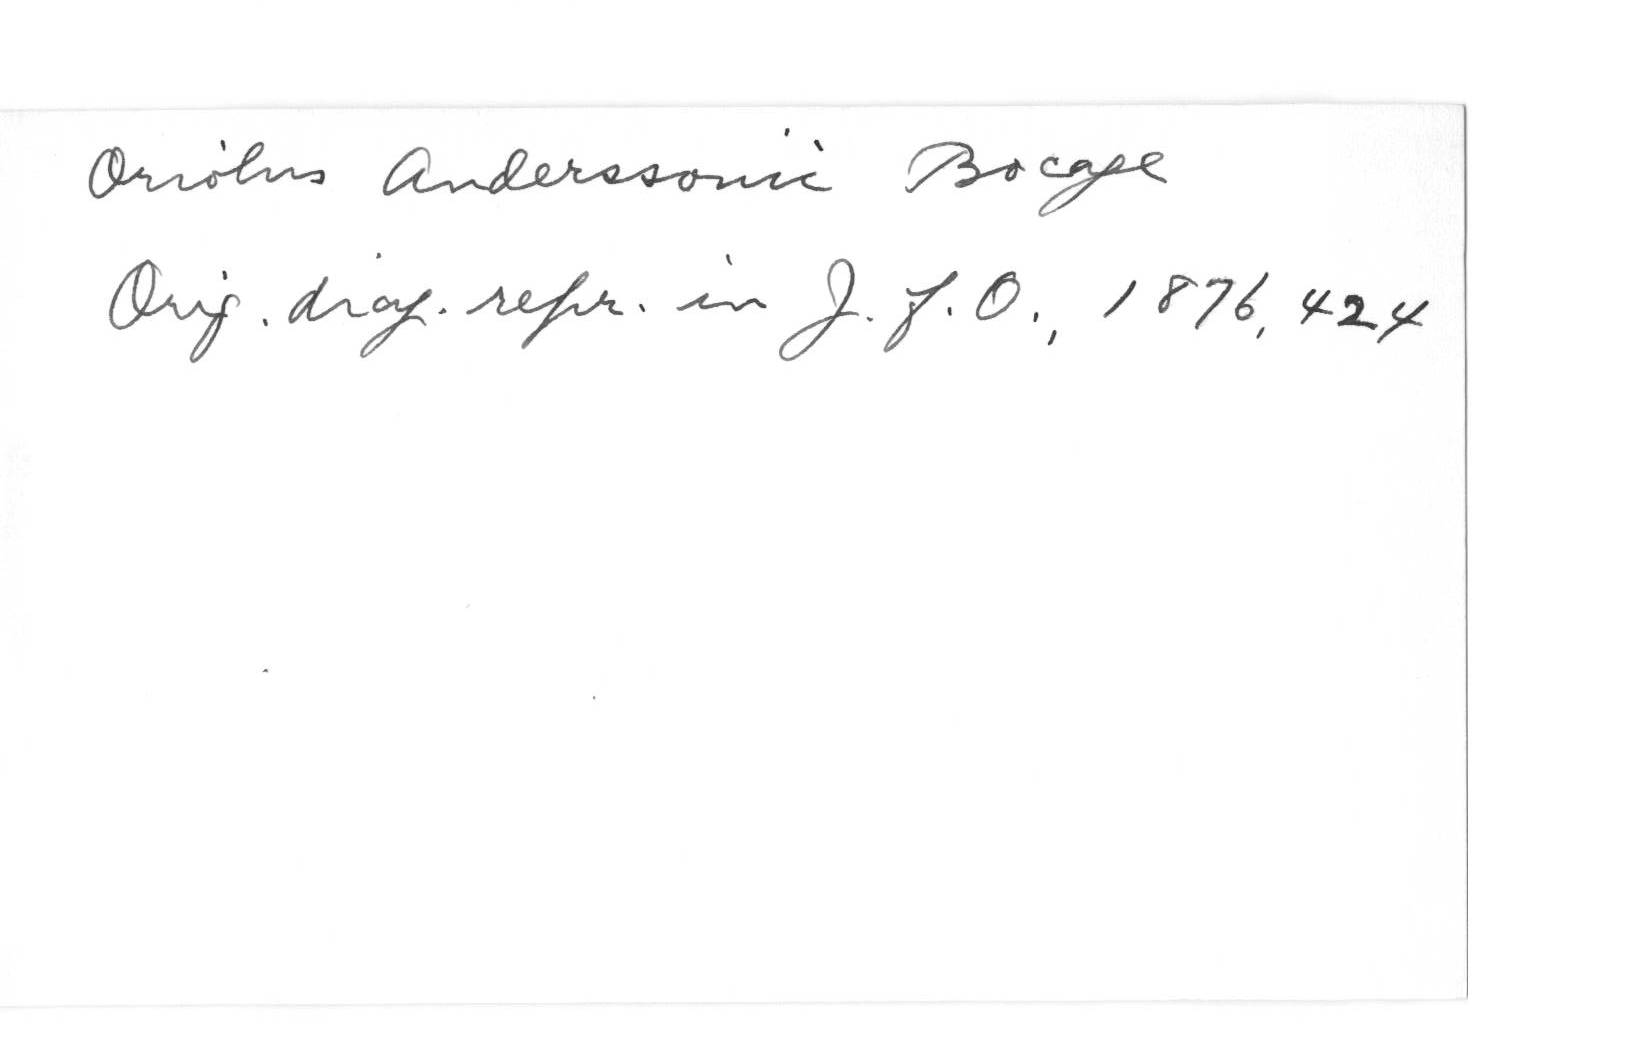 Oriolus Anderssonii Bocage
Orig. diag. repr. in J. f. O., 1876, 424